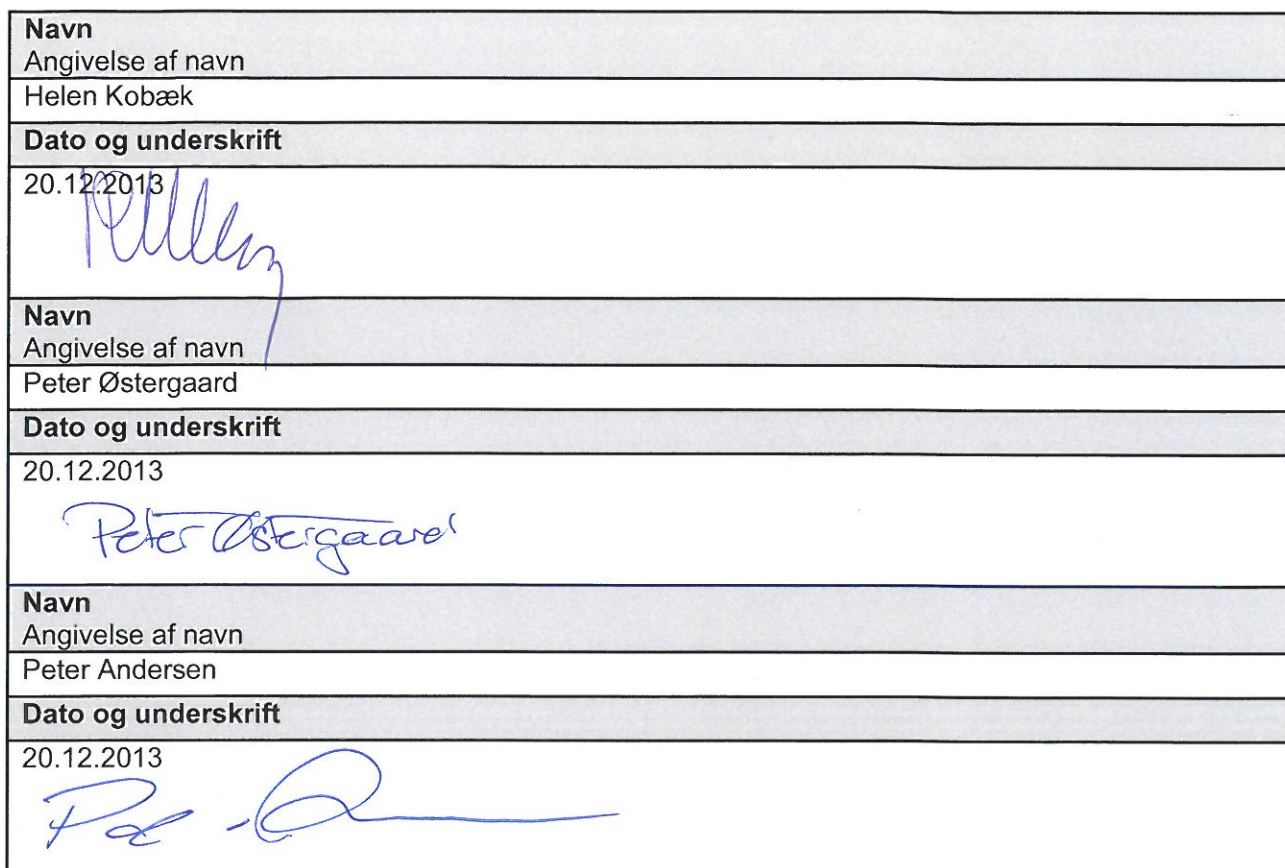 Navn
Angivelse af navn
Helen Kobæk
Dato og underskrift
20.12.2013
Navn
Angivelse af navn
Peter Østergaard
Dato og underskrift
20.12.2013
Peter Østergaard
Navn
Angivelse af navn
Peter Andersen
Dato og underskrift
20.12.2013